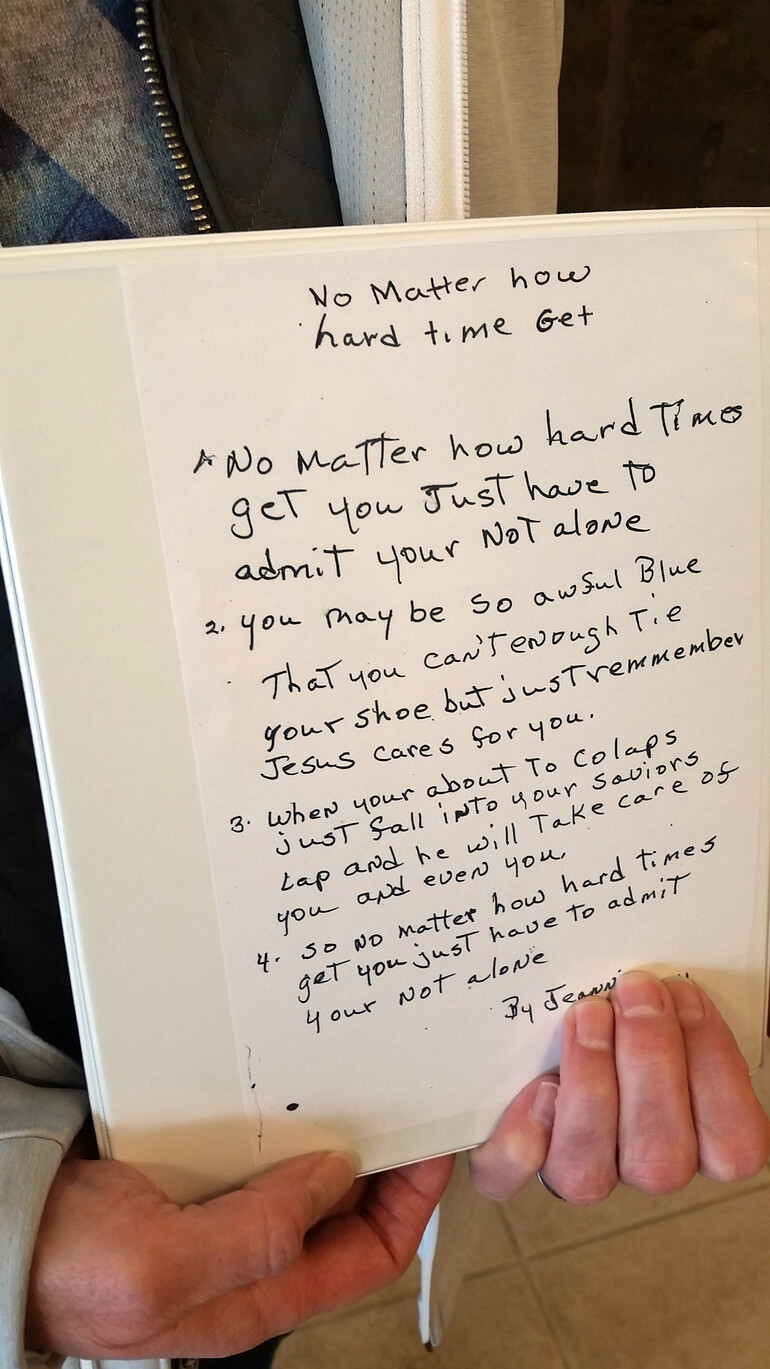 No Matter how
hard time Get
No Matter how hard Times
get you Just have To
admit your Not alone
2. you may be so awful Blue
That you can't enough Tie
your shoe but just remmember
Jesus cares for you.
3. when your about To Colaps
just fall into your Saviors
Lap and he will Take care of
you and even you.
4. so No matter how hard times
get you just have to admit
your Not alone
By